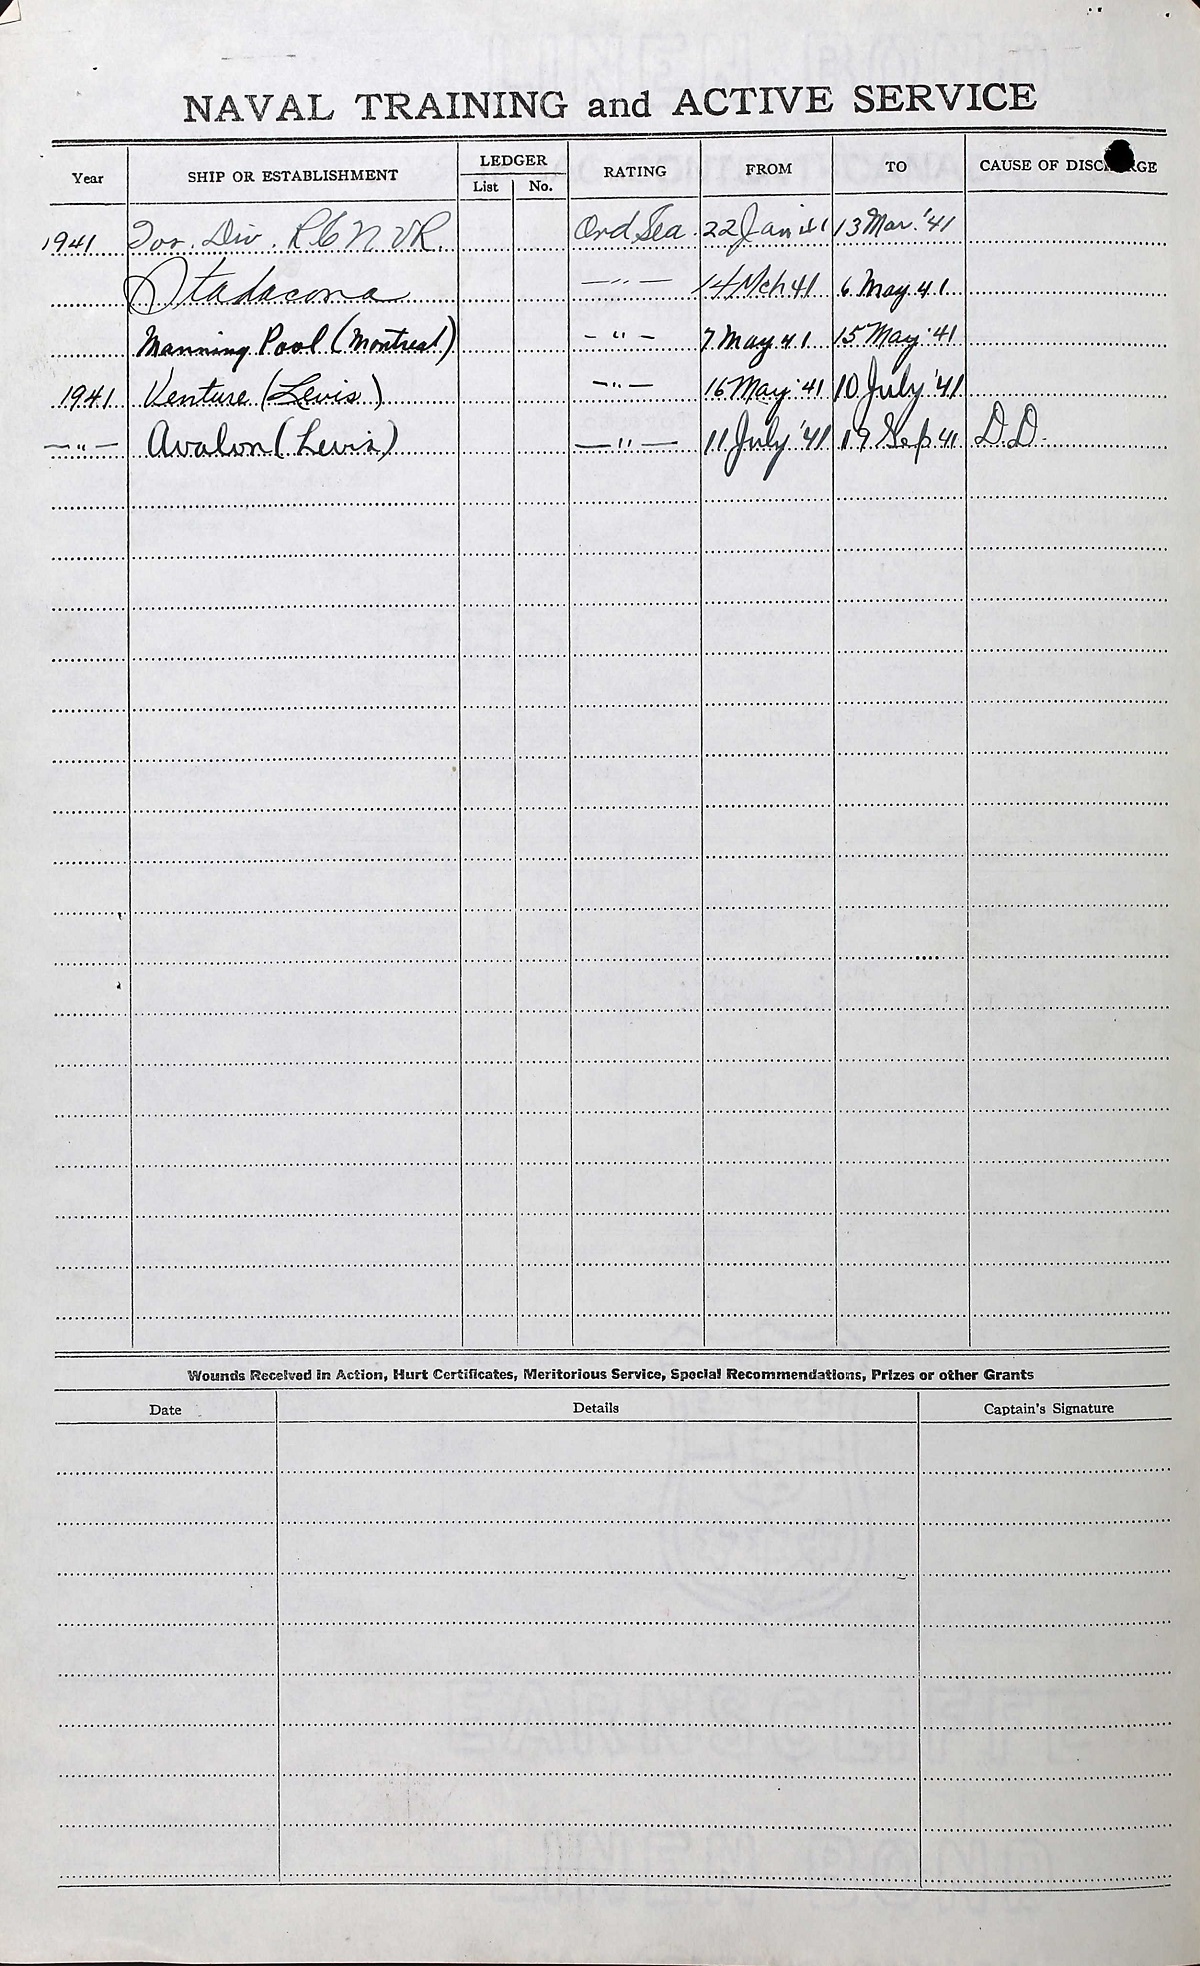 NAVAL TRAINING and ACTIVE SERVICE
Year SHIP OR ESTABLISHMENT LEDGER List No. RATING FROM TO CAUSE OF DISCHARGE
1941 Tor. Div. R C N V R. Ord Sea. 22 Jan 41 13 Mar. '41
Stadacona — " — 14 Mch 41 6 May 41
Manning Pool (Montreal) — " — 7 May 41 15 May '41
1941 Venture (Levis) — " — 16 May '41 10 July '41
— " — Avalon (Levis) — " — 11 July '41 19 Sep 41 D.D.
Wounds Received in Action, Hurt Certificates, Meritorious Service, Special Recommendations, Prizes or other Grants
Date Details Captain's Signature